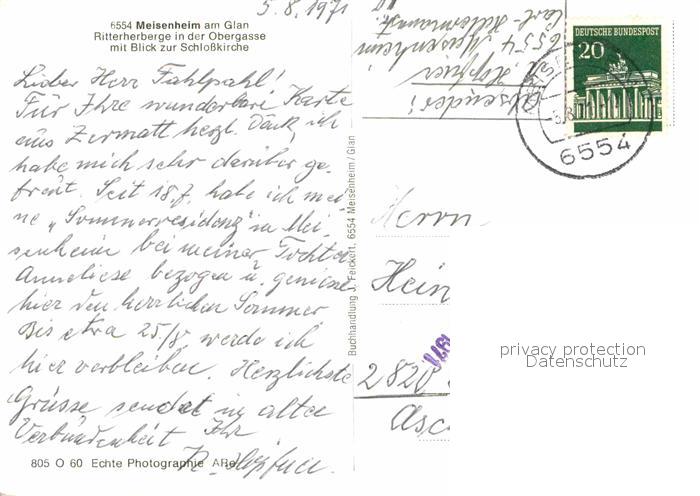 5.8.1971
6554 Meisenheim am Glan
Ritterherberge in der Obergasse
mit Blick zur Schloßkirche
Lieber Herr Fahlpahl!
Für Ihre wunderbare Karte
aus Zermatt herzl. Dank, ich
habe mich sehr darüber ge-
freut. Seit 18.7. habe ich mei-
ne „Sommerresidenz" in Mei-
senheim bei meiner Tochter
Anneliese bezogen u. geniesse
hier den herrlichen Sommer
Bis etwa 25/8. werde ich
hier verbleiben. Herzlichste
Grüsse sendet in alter
Verbundenheit Ihr
805 O 60 Echte Photographie
Buchhandlung J. Feickert, 6554 Meisenheim/Glan
Absender:
6554 Meisenheim
DEUTSCHE BUNDESPOST
20
6554
Herrn
Hein
1971
2820
privacy protection
Datenschutz